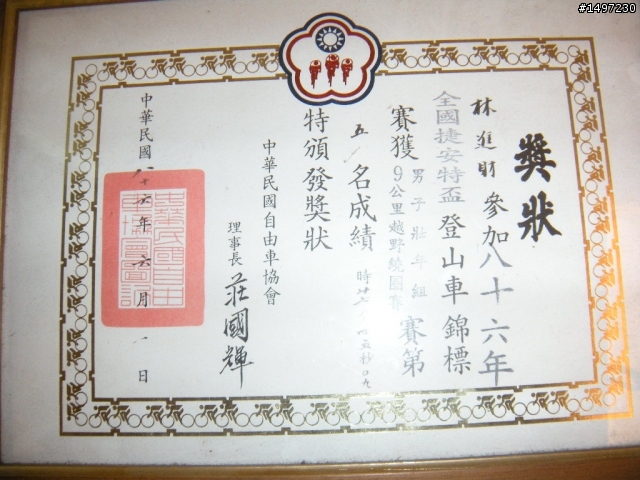 #1497230
獎狀
林進財參加八十六年
全國捷安特盃登山車錦標
賽獲男子壯年組
9公里越野繞圈賽
賽第
五名成績
特頒發獎狀
中華民國自由車協會
理事長莊國輝
中華民國八十六年六月一日